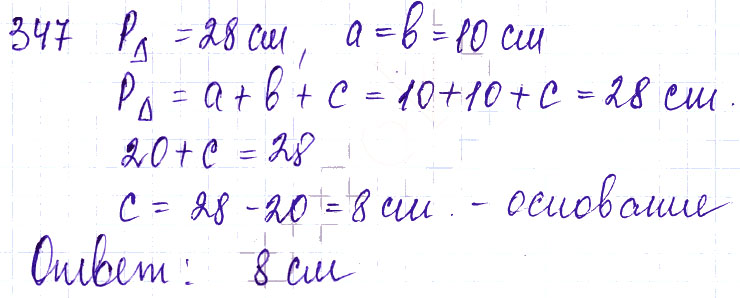 347 P△ = 28 см, a = b = 10 см
P△ = a + b + c = 10 + 10 + c = 28 см.
20 + c = 28
c = 28 - 20 = 8 см. - основание
Ответ: 8 см